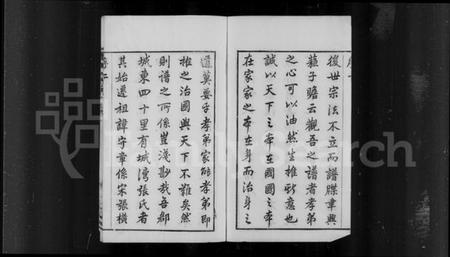 後世宗法不立而譜牒聿興
蘓子瞻云觀吾之譜者孝弟
之心可以油然生推斯意也
誠以天下之本在國國之本
在家家之本在身而治身之
道莫要于孝弟家能孝弟即
推之治國與天下不難矣然
則譜之所係豈淺尠哉吾郡
城東四十里有城灣張氏者
其始遷祖諱守章係宋張橫